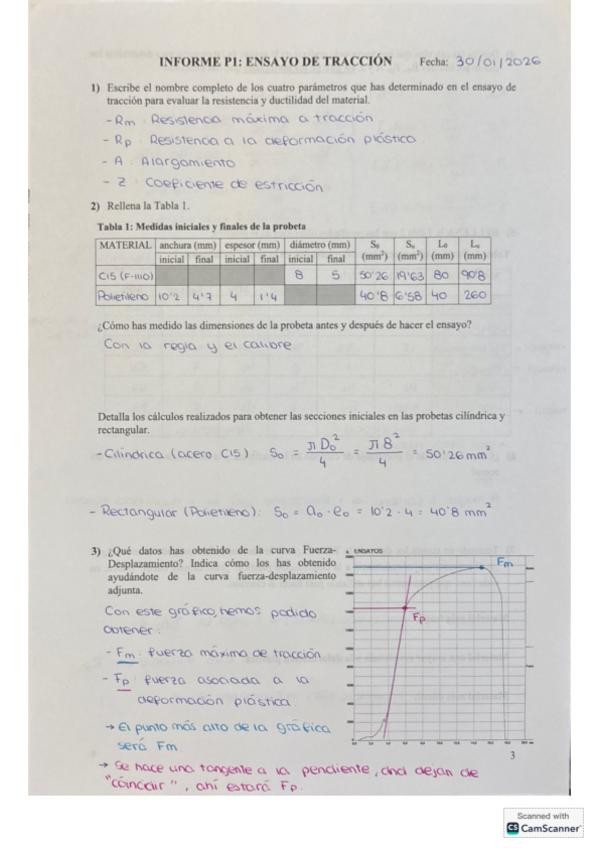 INFORME P1: ENSAYO DE TRACCIÓN Fecha: 30/01/2026
1) Escribe el nombre completo de los cuatro parámetros que has determinado en el ensayo de
tracción para evaluar la resistencia y ductilidad del material.
- Rm : Resistencia máxima a tracción
- Rp : Resistencia a la deformación plástica
- A : Alargamiento
- Z : Coeficiente de estricción
2) Rellena la Tabla 1.
Tabla 1: Medidas iniciales y finales de la probeta
MATERIAL anchura (mm) espesor (mm) diámetro (mm) S₀ (mm²) Sᵤ (mm²) L₀ (mm) Lᵤ (mm)
inicial final inicial final inicial final
C15 (F-1110) 8 5 50'26 19'63 80 90'8
Polietileno 10'2 4'7 4 1'4 40'8 6'58 40 260
¿Cómo has medido las dimensiones de la probeta antes y después de hacer el ensayo?
Con la regla y el calibre
Detalla los cálculos realizados para obtener las secciones iniciales en las probetas cilíndrica y
rectangular.
- Cilíndrica (acero C15) S₀ = π D₀² / 4 = π 8² / 4 = 50'26 mm²
- Rectangular (Polietileno): S₀ = a₀ · e₀ = 10'2 · 4 = 40'8 mm²
3) ¿Qué datos has obtenido de la curva Fuerza-
Desplazamiento? Indica cómo los has obtenido
ayudándote de la curva fuerza-desplazamiento
adjunta.
Con este gráfico, hemos podido
obtener:
- Fm : fuerza máxima de tracción
- Fp : fuerza asociada a la
deformación plástica
→ El punto más alto de la gráfica
será Fm
→ Se hace una tangente a la pendiente, dnd dejan de
"coincidir", ahí estará Fp.
Fm
Fp
3
Scanned with
CS CamScanner